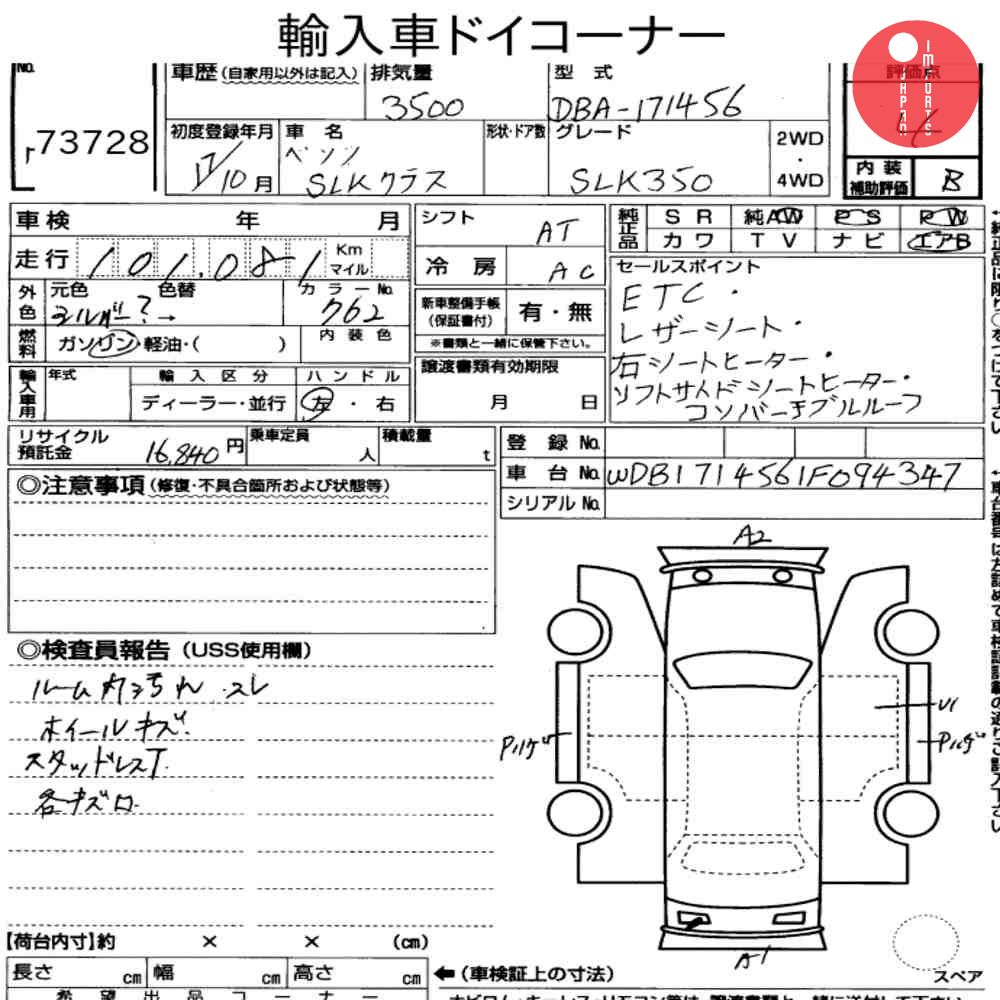 輸入車ドイコーナー
JAPAN IMPORTS
No. 73728
車歴 (自家用以外は記入) 排気量 型式 評価点
3500 DBA-171456 4
初度登録年月 車名 形状・ドア数 グレード 2WD・4WD 内装補助評価 B
17/10月 ベンツ SLKクラス SLK350
車検 年 月 シフト AT 純正品 SR 純AW PS PW
カワ TV ナビ エアB
走行 101,081 Km マイル 冷房 AC セールスポイント
ETC・
外色 元色 色替 カラーNo. 新車整備手帳 (保証書付) 有・無
シルバー?→ 762 レザーシート・
燃料 ガソリン・軽油・( ) 内装色 ※書類と一緒に保管下さい。
右シートヒーター・
輸入車用 年式 輸入区分 ハンドル 譲渡書類有効期限
ディーラー・並行 左・右 月 日
コンバーチブルルーフ
リサイクル預託金 16,840円 乗車定員 人 積載量 t 登録No.
車台No. WDB1714561F094347
シリアルNo.
◎注意事項 (修復・不具合箇所および状態等)
A2
◎検査員報告 (USS使用欄)
ホイールキズ.
スタッドレスT.
U1
A1
【荷台内寸】約 × × (cm)
スペア
長さ cm 幅 cm 高さ cm ←(車検証上の寸法)
希望出品コーナー